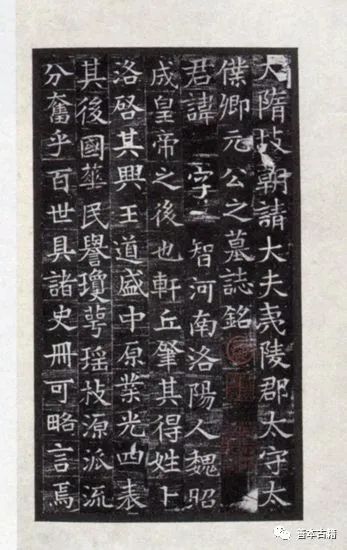 大隋故朝請大夫夷陵郡太守太
僕卿元公之墓誌銘
君諱 字 智河南洛陽人魏昭
成皇帝之後也軒丘肇其得姓卜
洛啓其興王道盛中原業光四表
其後國華民譽瓊萼瑶枝源派流
分奮乎百世具諸史冊可略言焉
善本古籍